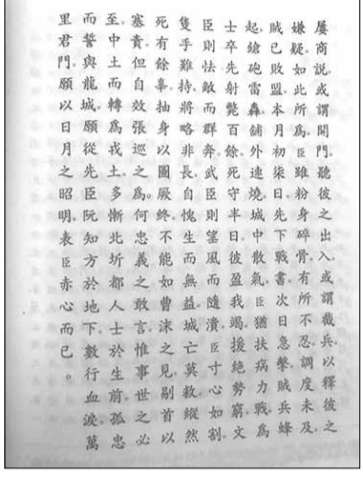 屢商說。或謂開門。聽彼之出入。或謂截兵。以釋彼之
嫌疑。如此所爲。臣雖粉身碎骨。有所不忍。調度未及。
賊已敗盟。本月初柒日。先下戰書。次日急擊。賊兵蜂
起。鎗砲雷轟。舖外連燒。城中散氣。臣猶扶病力戰。爲
士卒先。射斃百餘。死守半日。彼盈我竭。援絕勢窮。文
臣則怯敵而群奔。武臣則望風而隨潰。臣寸心如割。
隻手難持。將略非長。自愧生而無益。城亡莫救。縱然
死有餘辜。抽身圖厥終。不能如曹沫之見。剮首以
塞責。而自效張巡之爲。何忠義之敢言。惟事世之必
至。中土轉爲戎土。多慚北圻都人士於生前。孤忠
而誓與龍城。願從先臣阮知方於地下。數行血淚。萬
里君門。願以日月之昭明。表臣赤心而已。